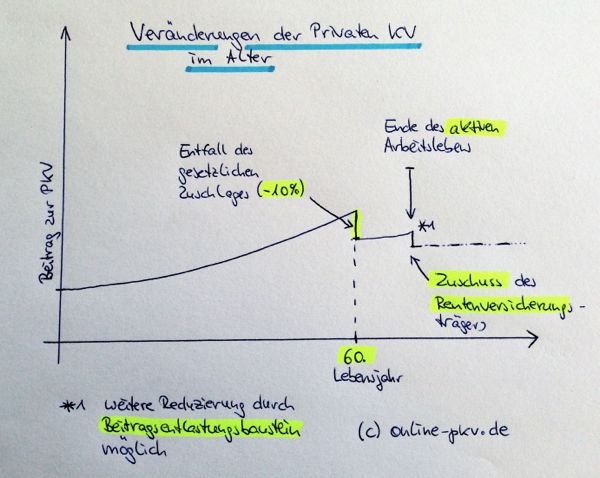 Veränderungen der Privaten KV
im Alter
Ende des aktiven
Arbeitsleben
Entfall des
gesetzlichen
Zuschlages (-10%)
Beitrag zur PKV
*1
Zuschuss des
Rentenversicherungs-
trägers
60.
Lebensjahr
*1 weitere Reduzierung durch
Beitragsentlastungsbaustein
möglich
(c) online-pkv.de